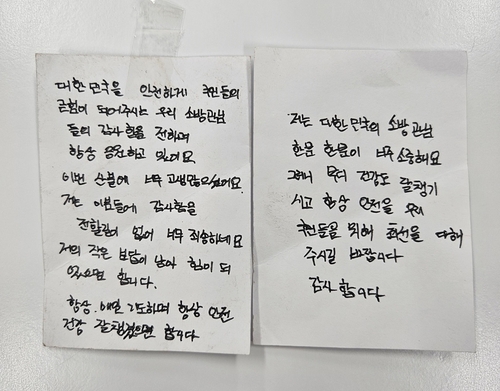 대한민국을 안전하게 국민들의
굳힘이 되어주시는 우리 소방관님
들의 감사함을 전하며
항상 응원하고 있어요
이번 산불에 너무 고생많으셨어요
저는 이분들에 감사함을
전할길이 없어 너무 죄송하네요
저의 작은 보탬이 남아 힘이 되
있으면 합니다.
항상. 매일 기도하며 항상 안전
건강 잘챙겼으면 합니다
저는 대한민국의 소방관님
한분 한분이 너무 소중해요
그러니 부디 건강도 잘챙기
시고 항상 안전을 우리
국민들을 위해 최선을 다해
주시길 바랍니다
감사합니다